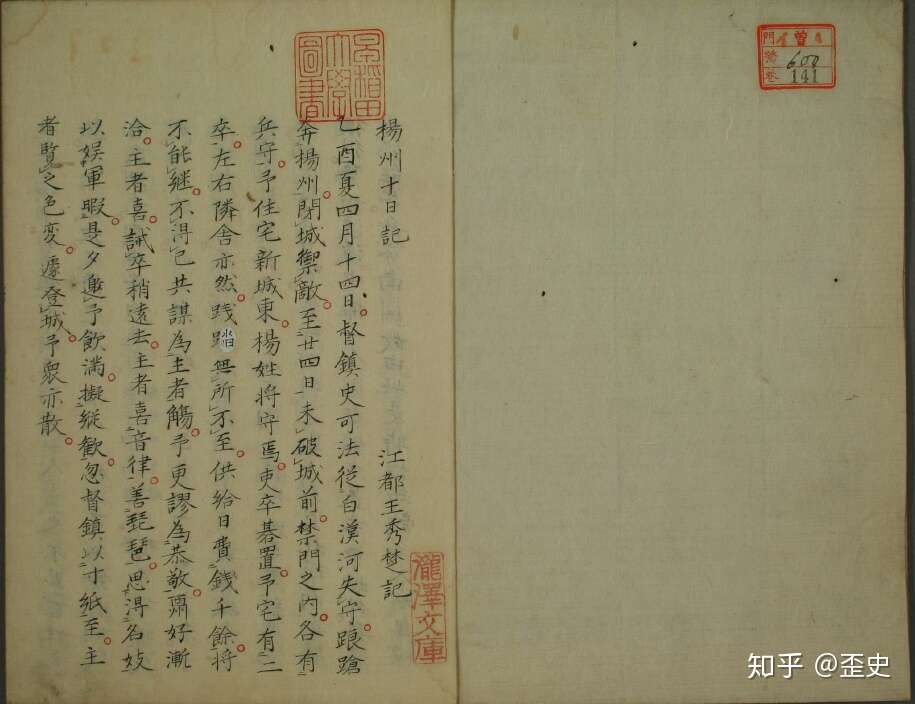 門 曽
號 600
巻 141
早稲田大學圖書
楊州十日記 江都王秀楚記
乙酉夏四月十四日。督鎮史可法從白漢河失守。踉蹌
奔楊州。閉城禦敵。至廿四日未破城前。禁門之内。各有
兵守。予住宅新城東。楊姓将守焉。吏卒碁置。予宅有二
卒。左右隣舎亦然。践踏無所不至。供給日費錢千餘。将
不能継。不得已共謀為主者觴。予更謬為恭敬。酬好漸
洽。主者喜。誡卒稍遠去。主者喜音律。善琵琶。思得名妓
以娯軍暇。是夕邀予飲満。擬縦歓。忽督鎮以寸紙至。主
者覧之色変。遽登城。予衆亦散。
瀧澤文庫
知乎 @歪史